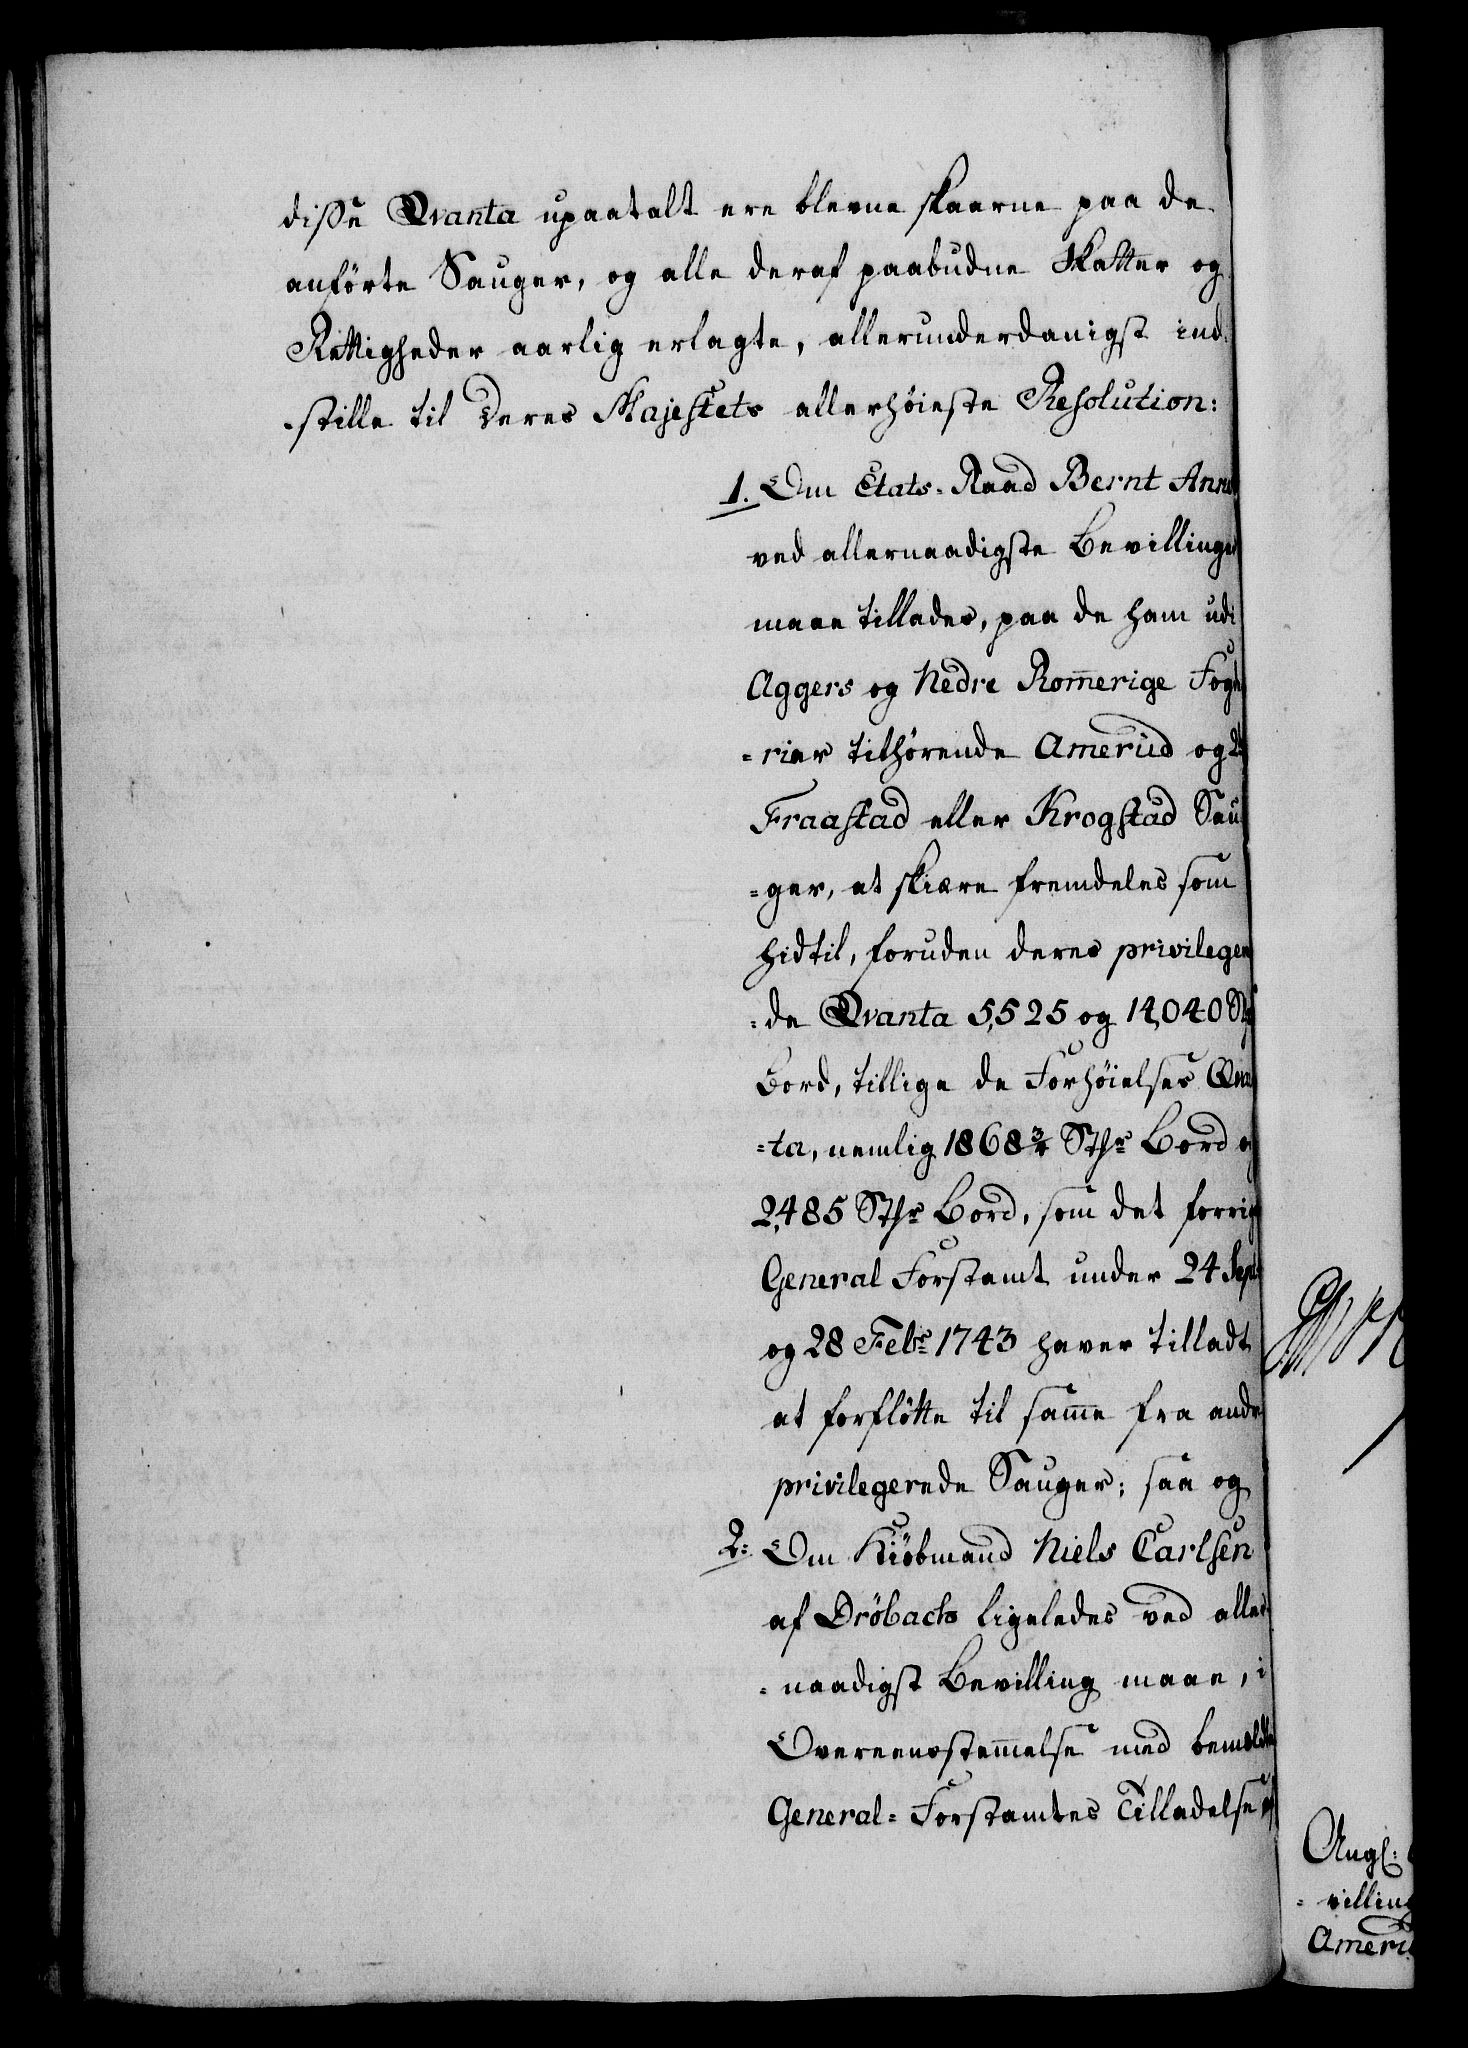 disse Qvanta upaatalt ere blevne skaarne paa de
anførte Sauger, og alle deraf paabudne Skatter og
Rettigheder aarlig erlagte, allerunderdanigst ind-
-stille til Deres Majestets allerhøieste Resolution:
1. Om Etats-Raad Bernt
ved allernaadigste Bevillinger
maae tillades, paa de ham udi
Aggers og Nedre Rom̅erige Fogde
=rier tilhørende Amerud og
Fraastad eller Krogstad Sau
=ger, at skiære fremdeles som
hidtil, foruden deres privilegere
=de Qvanta 5,525 og 14,040
Bord, tillige de Forhøielses Qvan
=ta, nemlig 1868¾ Sthr Bord og
2,485 Sthr Bord, som det forrige
General Forstamt under 24 Septr
og 28 Febr 1743 haver tilladt
at forflötte til sam̅e fra andre
privilegerede Sauger; saa og
2: Om Kiøbmand Niels Carlsen
af Dröbach ligeledes ved aller-
=naadigst Bevilling maae, i
Overeenstem̅else med bemeldte
General-Forstamtes Tilladelse
Angl:
=villing
Ameru